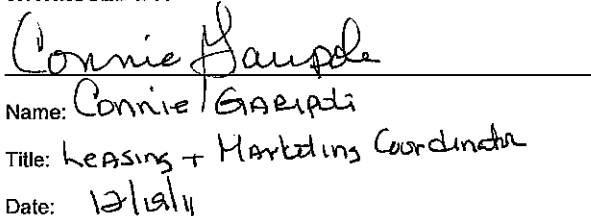 Connie Garipoli
Name: Connie GARIPOLi
Title: LeASing + MArketing Coordinator
Date: